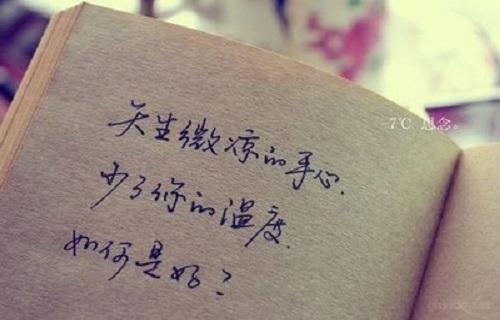 天生微凉的手心.
少了你的温度.
如何是好?
7℃ 想念。